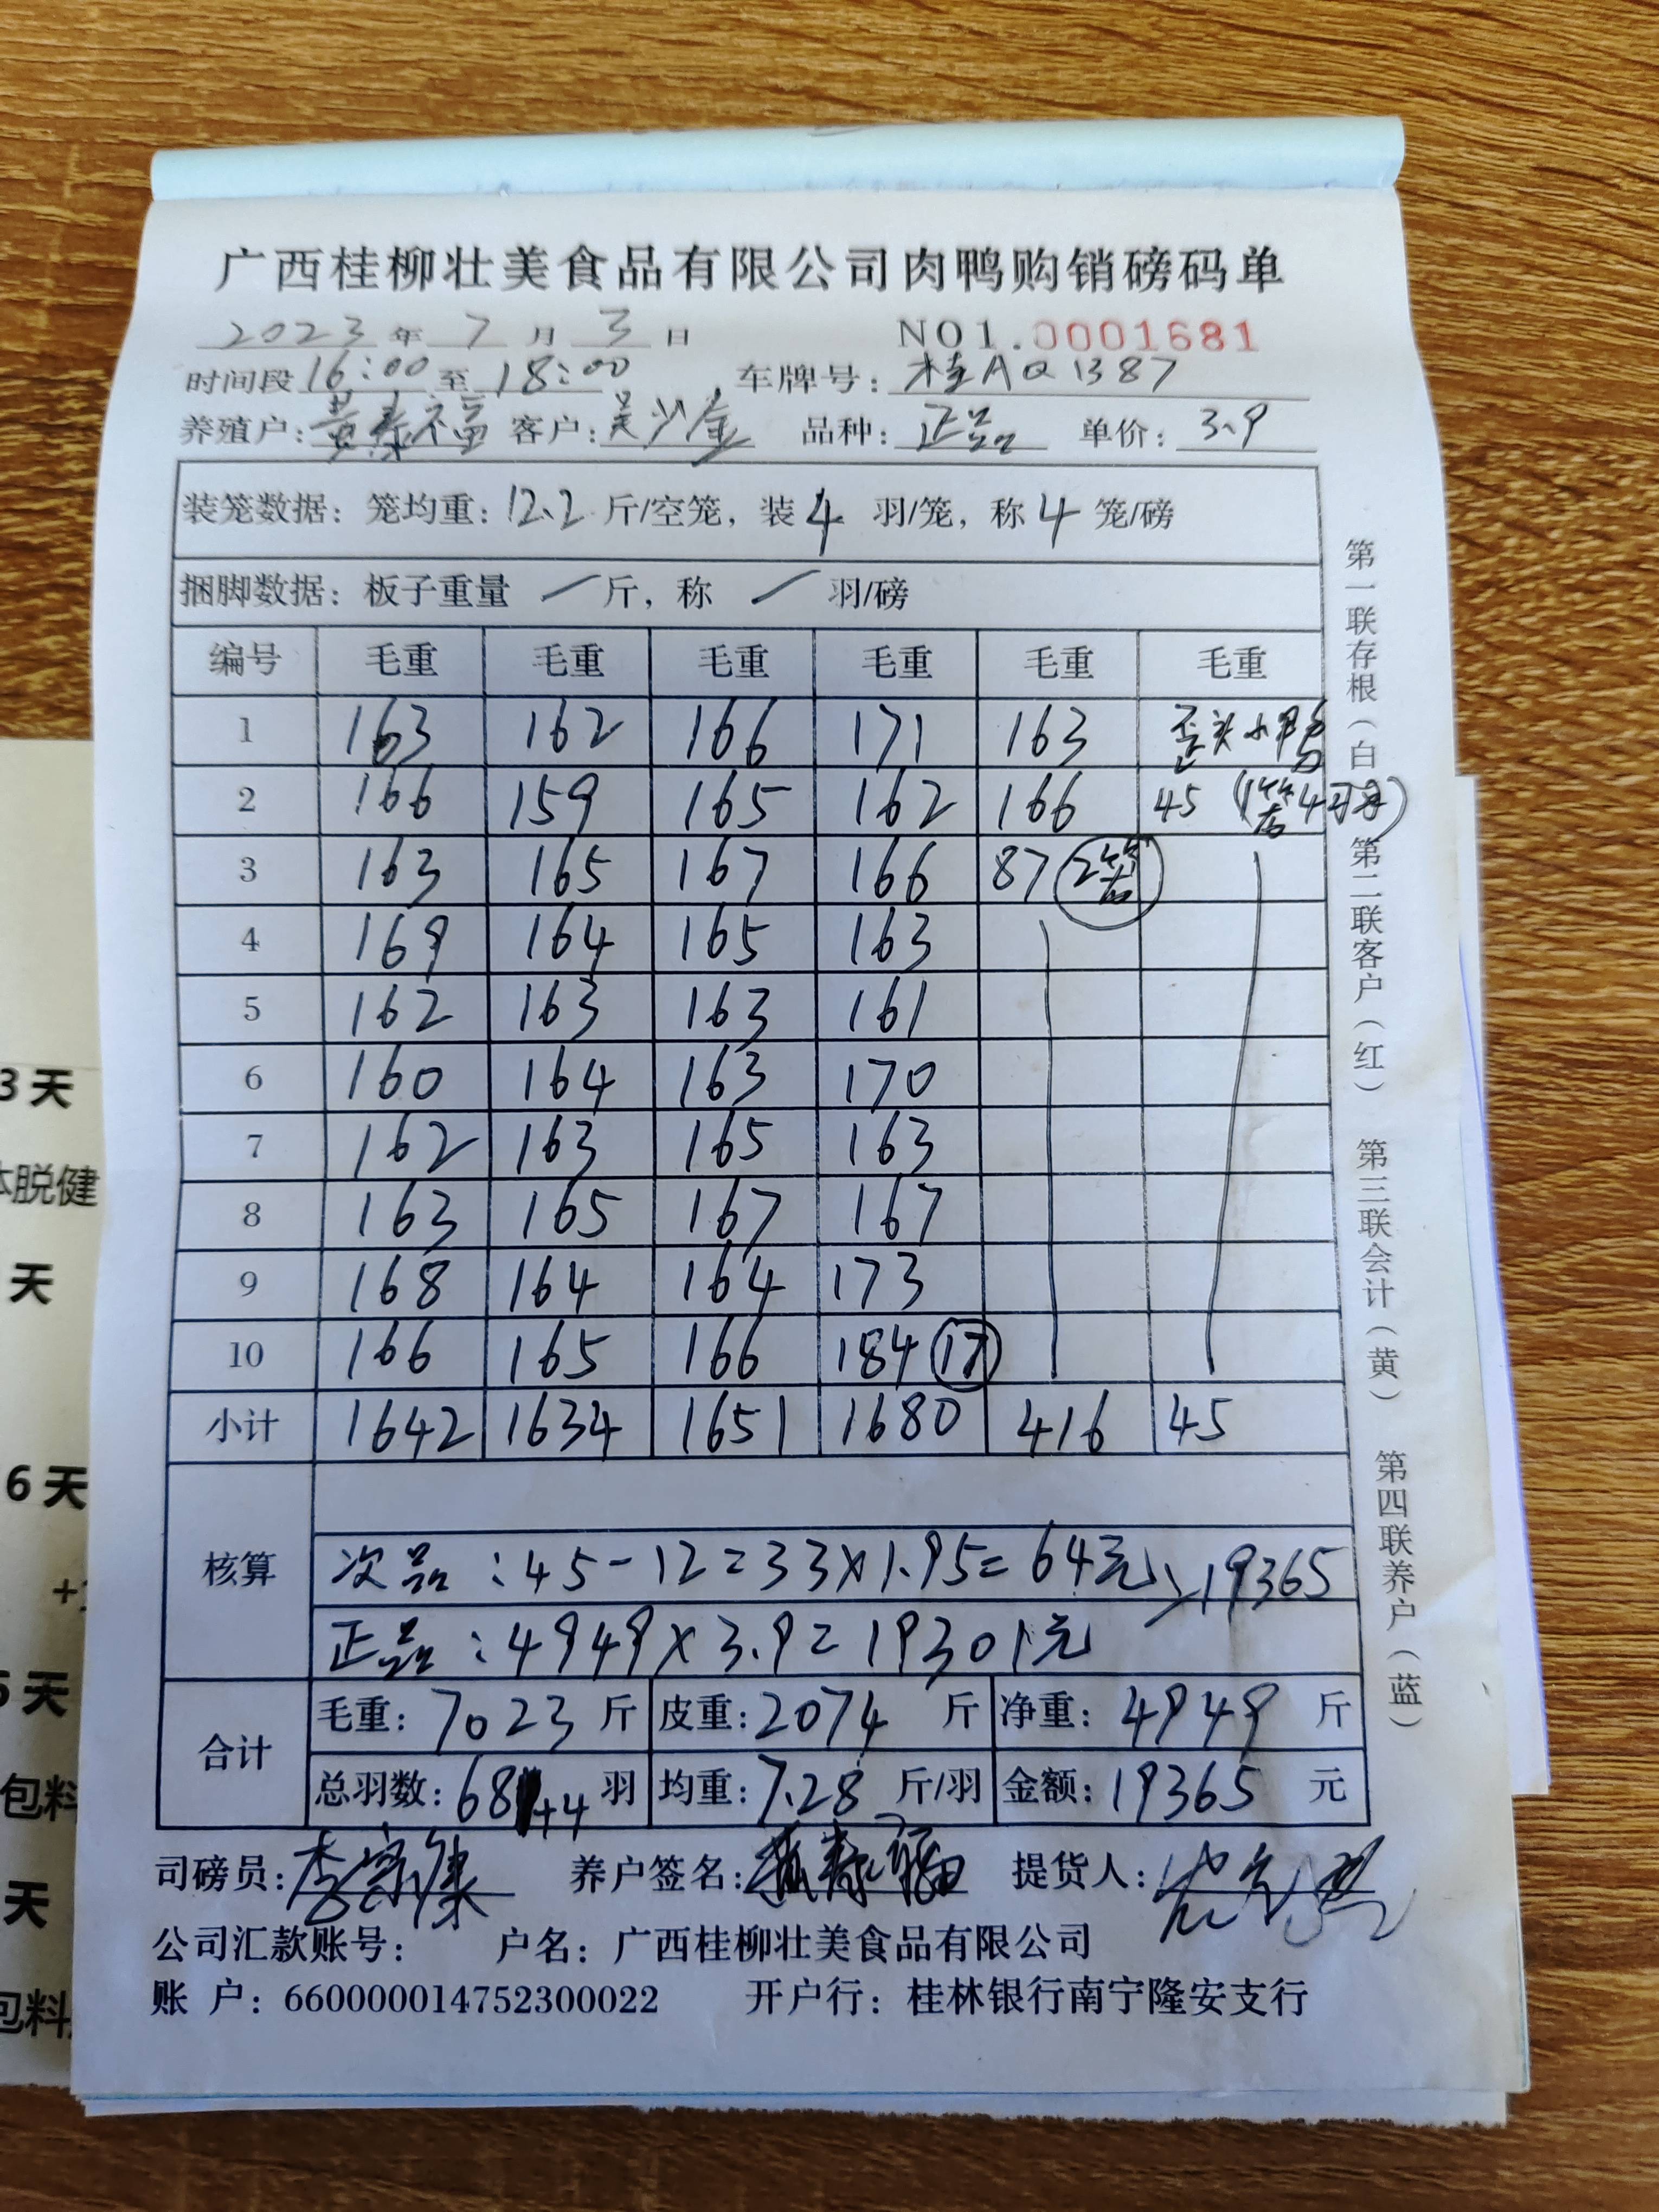 广西桂柳壮美食品有限公司肉鸭购销磅码单
2023 年 7 月 3 日 NO1.0001681
时间段 16:00 至 18:00 车牌号: 桂AQ1387
养殖户: 黄泰福 客户: 吴少金 品种: 正品 单价: 3.9
装笼数据: 笼均重: 12.2 斤/空笼, 装 4 羽/笼, 称 4 笼/磅
捆脚数据: 板子重量 / 斤, 称 / 羽/磅
编号 毛重 毛重 毛重 毛重 毛重 毛重
1 163 162 166 171 163 歪头小鸭
2 166 159 165 162 166 45 (1笼4羽)
3 163 165 167 166 87 2笼
4 169 164 165 163
5 162 163 163 161
6 160 164 163 170
7 162 163 165 163
8 163 165 167 167
9 168 164 164 173
10 166 165 166 184 17
小计 1642 1634 1651 1680 416 45
核算
次品:45-12=33×1.95=64元 >19365
正品:4949×3.9=19301元
合计
毛重: 7023 斤 皮重: 2074 斤 净重: 4949 斤
总羽数: 681+4 羽 均重: 7.28 斤/羽 金额: 19365 元
司磅员: 养户签名: 提货人:
公司汇款账号: 户名: 广西桂柳壮美食品有限公司
账 户: 660000014752300022 开户行: 桂林银行南宁隆安支行
第一联存根(白) 第二联客户(红) 第三联会计(黄) 第四联养户(蓝)
3天
脱健
天
6天
5天
包料
天
包料